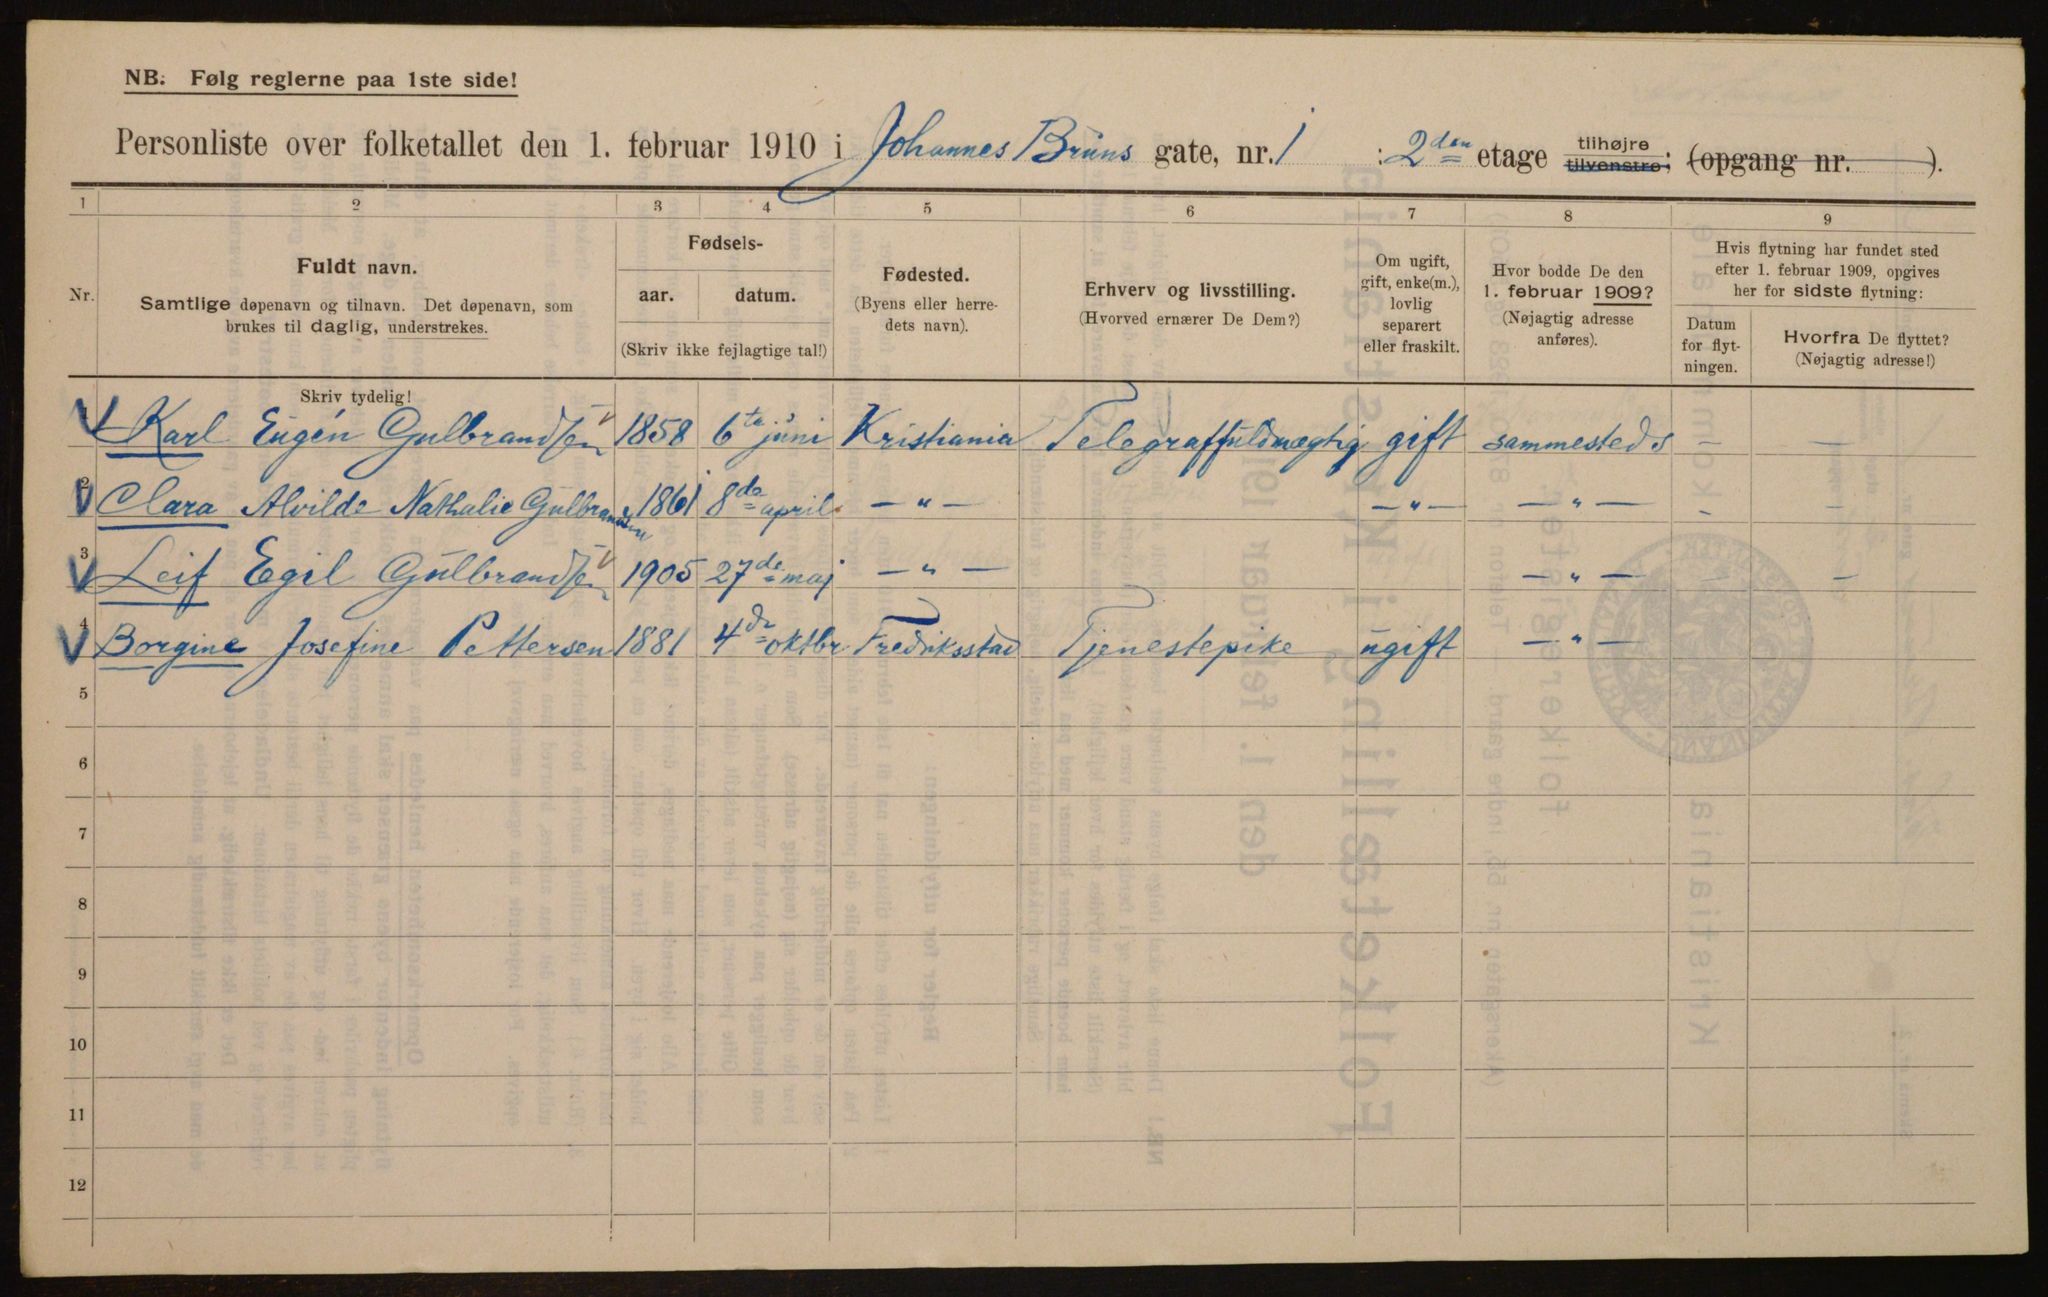 NB. Følg reglerne paa 1ste side!
Personliste over folketallet den 1. februar 1910 i Johannes Bruns gate, nr. 1 : 2den etage tilhøjre tilvenstre; (opgang nr. ).
1 2 3 4 5 6 7 8 9
Nr.
Fuldt navn.
Samtlige døpenavn og tilnavn. Det døpenavn, som
brukes til daglig, understrekes.
Skriv tydelig!
Fødsels-
aar. datum.
(Skriv ikke fejlagtige tal!)
Fødested.
(Byens eller herre-
dets navn).
Erhverv og livsstilling.
(Hvorved ernærer De Dem?)
Om ugift,
gift, enke(m.),
lovlig
separert
eller fraskilt.
Hvor bodde De den
1. februar 1909?
(Nøjagtig adresse
anføres).
Hvis flytning har fundet sted
efter 1. februar 1909, opgives
her for sidste flytning:
Datum
for flyt-
ningen.
Hvorfra De flyttet?
(Nøjagtig adresse!)
1 Karl Eugén Gulbrandsen 1858 6te juni Kristiania Telegraffuldmægtig gift sammesteds – –
2 Clara Alvilde Nathalie Gulbrandsen 1861 8de april — „ — — „ — — „ — – –
3 Leif Egil Gulbrandsen 1905 27de maj — „ — — „ — – –
4 Borgine Josefine Pettersen 1881 4de oktbr Fredriksstad Tjenestepike ugift — „ —
5
6
7
8
9
10
11
12